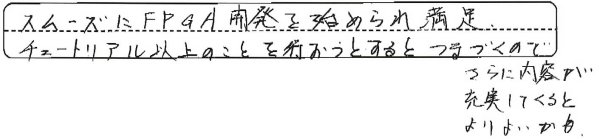 スムーズにFPGA開発を始められ満足.
チュートリアル以上のことを行おうとするとつまづくので
さらに内容が
充実してくると
よりよいかも.